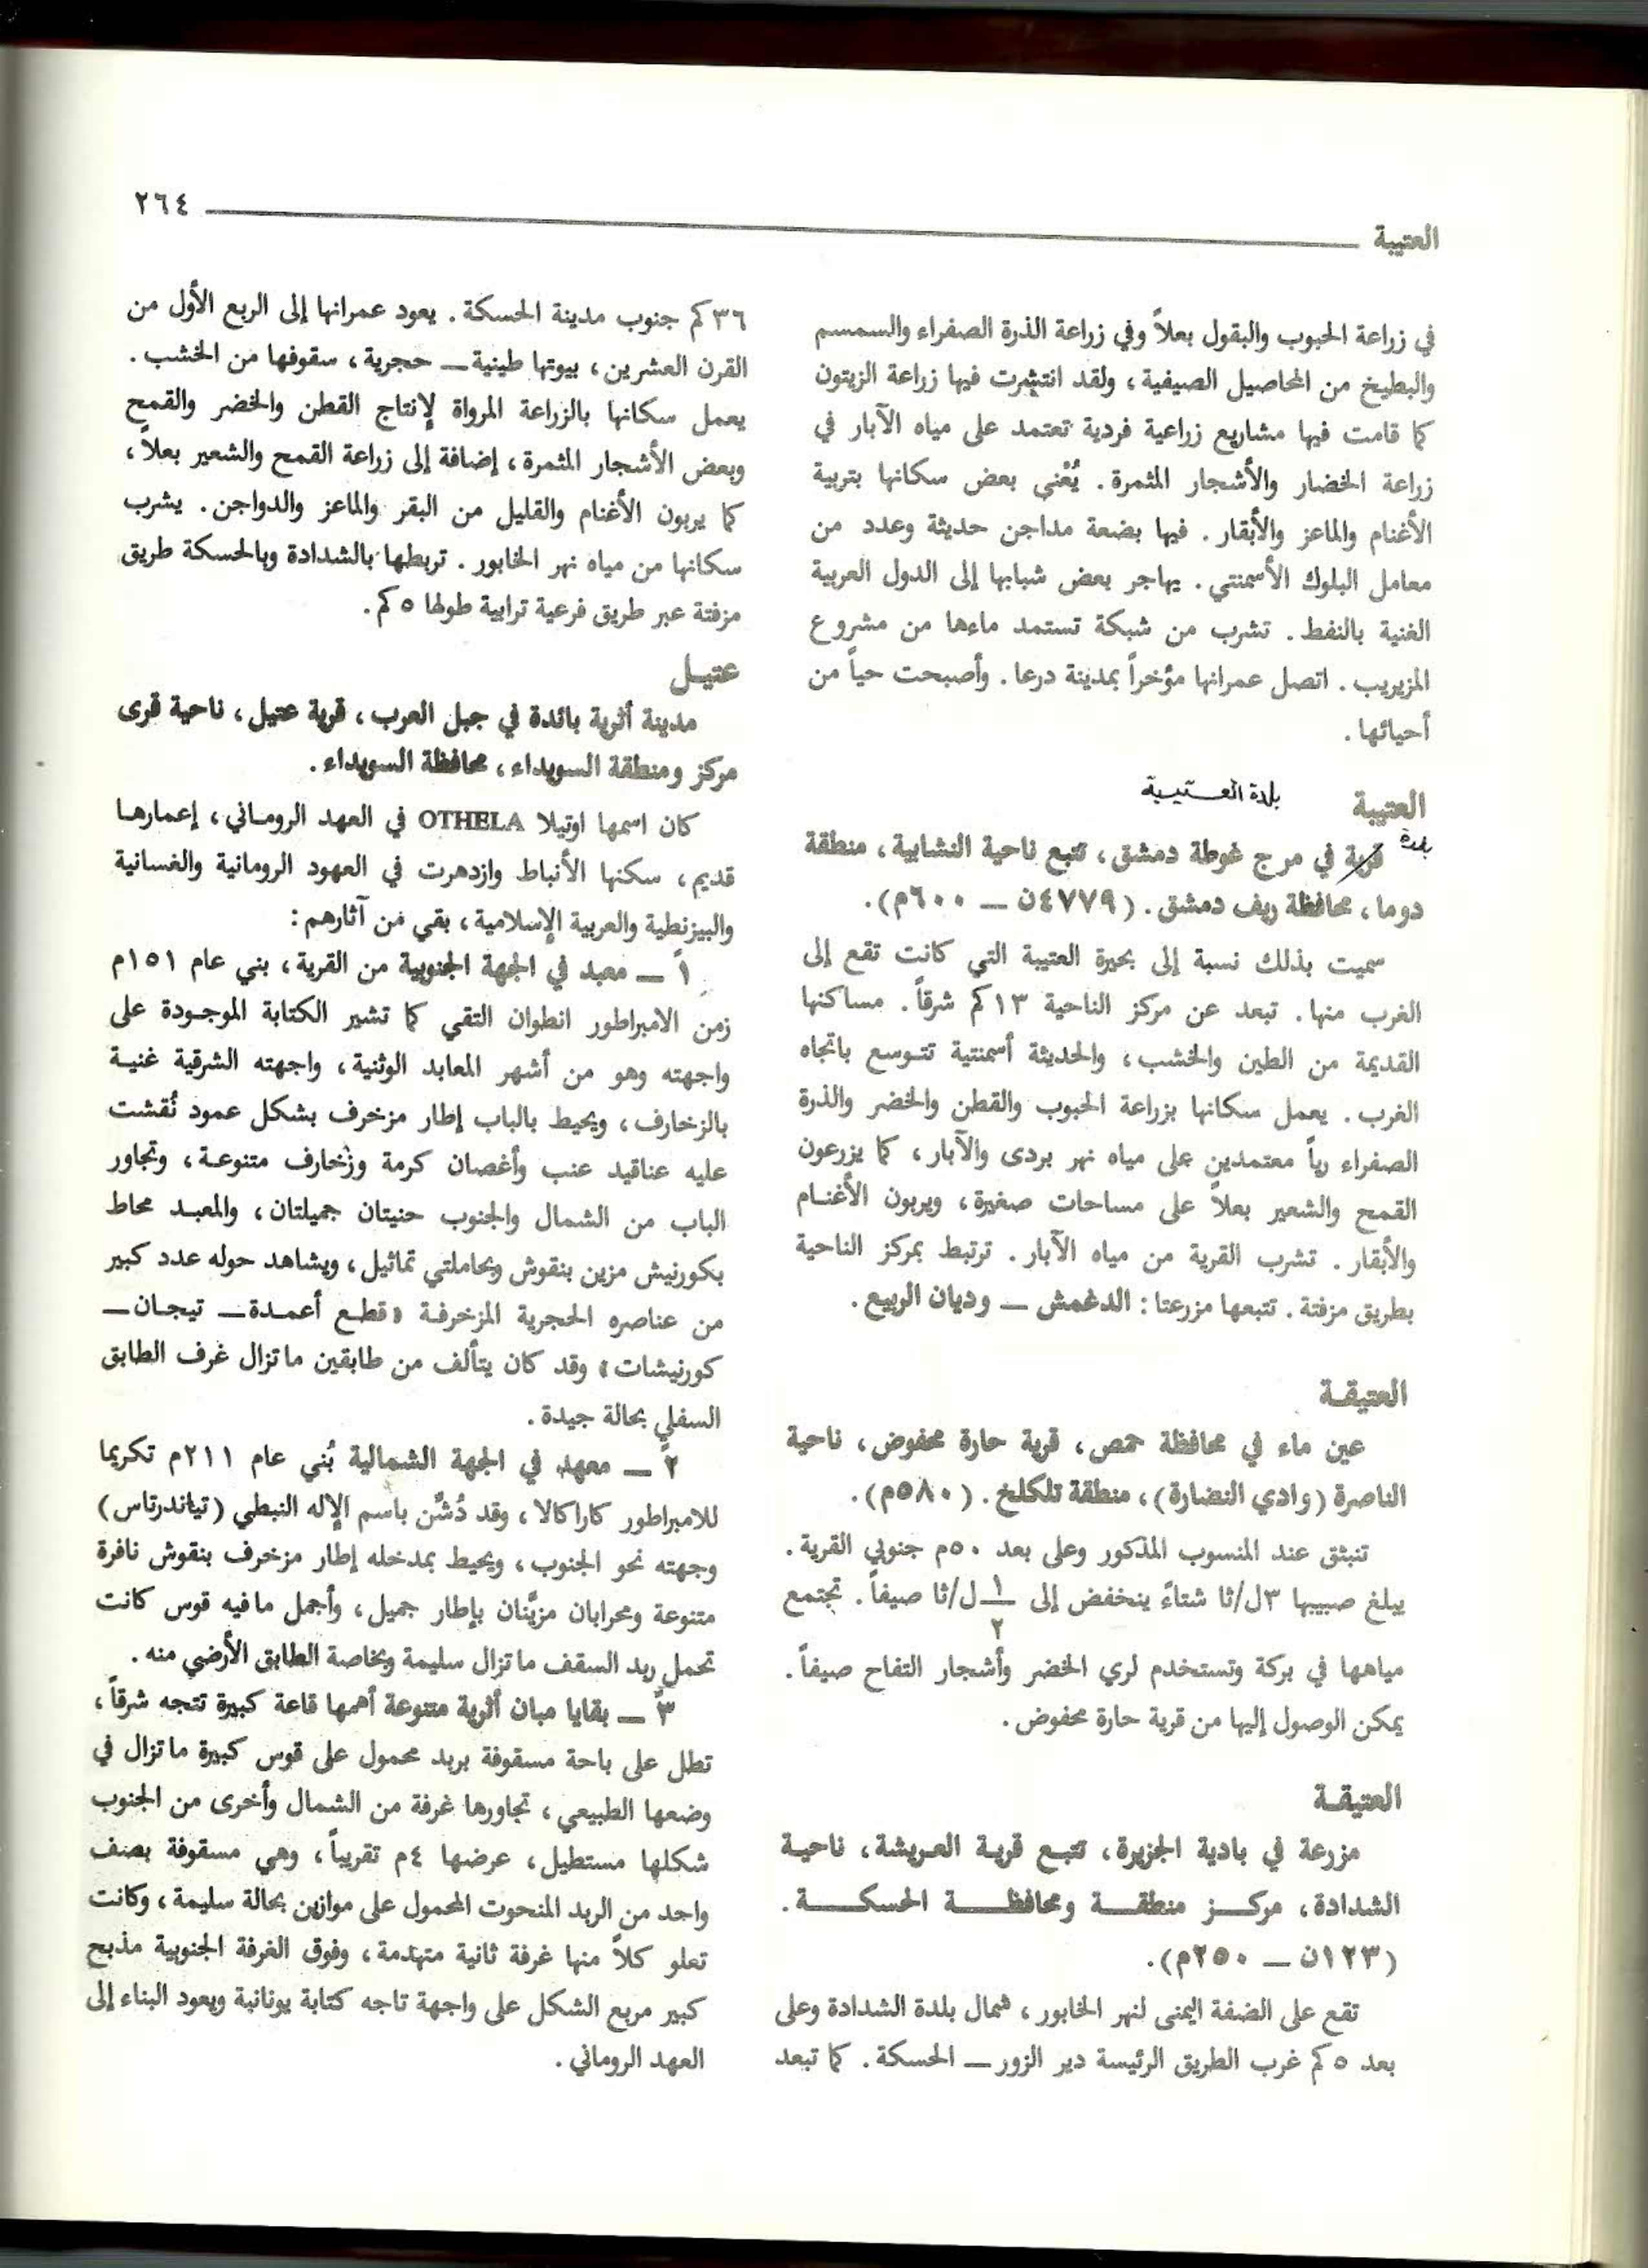 العتيبة ٢٦٤
في زراعة الحبوب والبقول بعلاً وفي زراعة الذرة الصفراء والسمسم
والبطيخ من المحاصيل الصيفية، ولقد انتشرت فيها زراعة الزيتون
كما قامت فيها مشاريع زراعية فردية تعتمد على مياه الآبار في
زراعة الخضار والأشجار المثمرة. يُعْنى بعض سكانها بتربية
الأغنام والماعز والأبقار. فيها بضعة مداجن حديثة وعدد من
معامل البلوك الأسمنتي. يهاجر بعض شبابها إلى الدول العربية
الغنية بالنفط. تشرب من شبكة تستمد ماءها من مشروع
المزيريب. اتصل عمرانها مؤخراً بمدينة درعا. وأصبحت حياً من
أحيائها.
العتيبة بلدة العتيبة
بلدة
قرية في مرج غوطة دمشق، تتبع ناحية النشابية، منطقة
دوما، محافظة ريف دمشق. (٤٧٧٩ن ــ ٦٠٠م).
سميت بذلك نسبة إلى بحيرة العتيبة التي كانت تقع إلى
الغرب منها. تبعد عن مركز الناحية ١٣كم شرقاً. مساكنها
القديمة من الطين والخشب، والحديثة أسمنتية تتوسع باتجاه
الغرب. يعمل سكانها بزراعة الحبوب والقطن والخضر والذرة
الصفراء رياً معتمدين على مياه نهر بردى والآبار، كما يزرعون
القمح والشعير بعلاً على مساحات صغيرة، ويربون الأغنام
والأبقار. تشرب القرية من مياه الآبار. ترتبط بمركز الناحية
بطريق مزفتة. تتبعها مزرعتا: الدغمش ــ وديان الربيع.
العتيقة
عين ماء في محافظة حمص، قرية حارة محفوض، ناحية
الناصرة (وادي النضارة)، منطقة تلكلخ. (٥٨٠م).
تنبثق عند المنسوب المذكور وعلى بعد ٥٠م جنوبي القرية.
يبلغ صبيبها ٣ل/ثا شتاءً ينخفض إلى ١/٢ ل/ثا صيفاً. تجتمع
مياهها في بركة وتستخدم لري الخضر وأشجار التفاح صيفاً.
يمكن الوصول إليها من قرية حارة محفوض.
العتيقة
مزرعة في بادية الجزيرة، تتبع قرية العريشة، ناحية
الشدادة، مركز منطقة ومحافظة الحسكة.
(١٢٣ن ــ ٢٥٠م).
تقع على الضفة اليمنى لنهر الخابور، شمال بلدة الشدادة وعلى
بعد ٥كم غرب الطريق الرئيسة دير الزور ــ الحسكة. كما تبعد
٣٦كم جنوب مدينة الحسكة. يعود عمرانها إلى الربع الأول من
القرن العشرين، بيوتها طينية ــ حجرية، سقوفها من الخشب.
يعمل سكانها بالزراعة المرواة لإنتاج القطن والخضر والقمح
وبعض الأشجار المثمرة، إضافة إلى زراعة القمح والشعير بعلاً،
كما يربون الأغنام والقليل من البقر والماعز والدواجن. يشرب
سكانها من مياه نهر الخابور. تربطها بالشدادة وبالحسكة طريق
مزفتة عبر طريق فرعية ترابية طولها ٥كم.
عتيل
مدينة أثرية بائدة في جبل العرب، قرية عتيل، ناحية قرى
مركز ومنطقة السويداء، محافظة السويداء.
كان اسمها اوتيلا OTHELA في العهد الروماني، إعمارها
قديم، سكنها الأنباط وازدهرت في العهود الرومانية والغسانية
والبيزنطية والعربية الإسلامية، بقي من آثارهم:
١ً ــ معبد في الجهة الجنوبية من القرية، بني عام ١٥١م
زمن الامبراطور انطوان التقي كما تشير الكتابة الموجودة على
واجهته وهو من أشهر المعابد الوثنية، واجهته الشرقية غنية
بالزخارف، ويحيط بالباب إطار مزخرف بشكل عمود نُقشت
عليه عناقيد عنب وأغصان كرمة وزخارف متنوعة، وتجاور
الباب من الشمال والجنوب حنيتان جميلتان، والمعبد محاط
بكورنيش مزين بنقوش وبحاملتي تماثيل، ويشاهد حوله عدد كبير
من عناصره الحجرية المزخرفة «قطع أعمدة ــ تيجان ــ
كورنيشات» وقد كان يتألف من طابقين ماتزال غرف الطابق
السفلي بحالة جيدة.
٢ً ــ معهد في الجهة الشمالية بُني عام ٢١١م تكريما
للامبراطور كاراكالا، وقد دُشّن باسم الإله النبطي (تياندرتاس)
وجهته نحو الجنوب، ويحيط بمدخله إطار مزخرف بنقوش نافرة
متنوعة ومحرابان مزيّنان بإطار جميل، وأجمل مافيه قوس كانت
تحمل ربد السقف ماتزال سليمة وبخاصة الطابق الأرضي منه.
٣ً ــ بقايا مبان أثرية متنوعة أهمها قاعة كبيرة تتجه شرقاً،
تطل على باحة مسقوفة بربد محمول على قوس كبيرة ماتزال في
وضعها الطبيعي، تجاورها غرفة من الشمال وأخرى من الجنوب
شكلها مستطيل، عرضها ٤م تقريباً، وهي مسقوفة بصف
واحد من الربد المنحوت المحمول على موازين بحالة سليمة، وكانت
تعلو كلاً منها غرفة ثانية متهدمة، وفوق الغرفة الجنوبية مذبح
كبير مربع الشكل على واجهة تاجه كتابة يونانية ويعود البناء إلى
العهد الروماني.